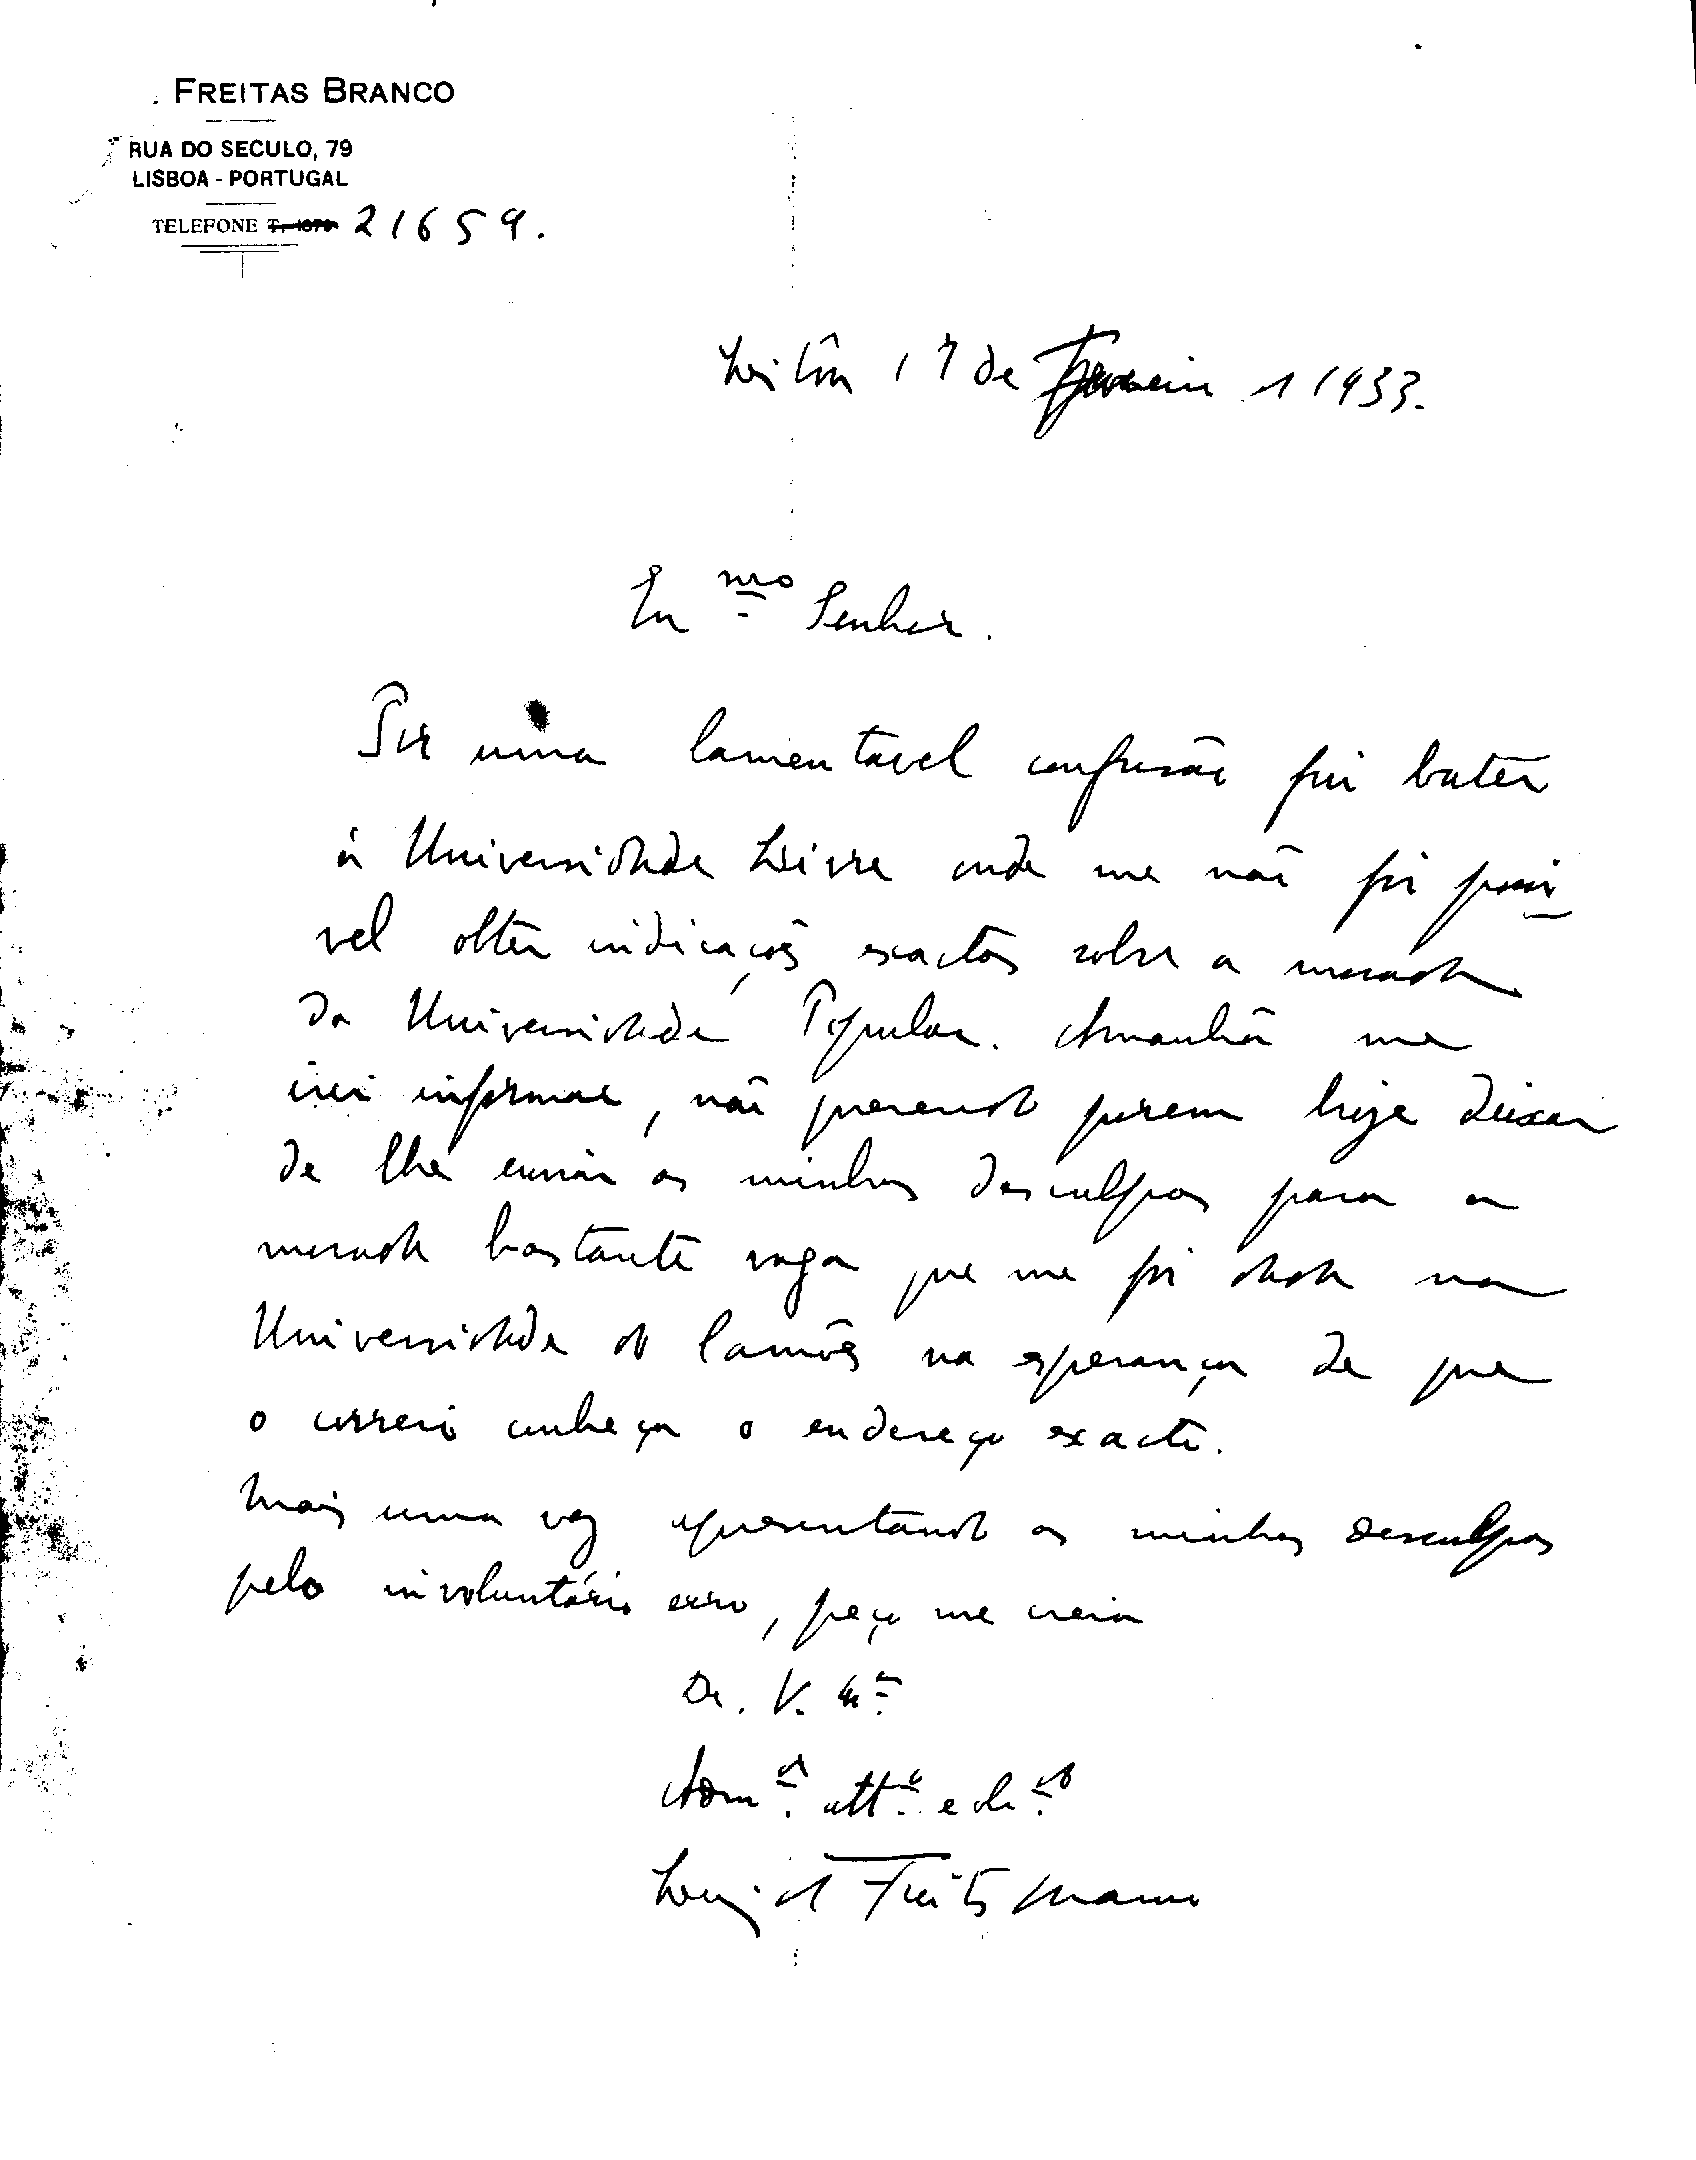 FREITAS BRANCO
RUA DO SECULO, 79
LISBOA - PORTUGAL
TELEFONE 21659.
Lisboa 17 de Fevereiro de 1933.
Exmo Senhor.
Por uma lamentavel confusão fui bater
á Universidade Livre onde me não foi possi-
vel obter indicações exactas sobre a morada
da Universidade Popular. Amanhã me
irei informar, não querendo porem hoje deixar
de lhe enviar as minhas desculpas para a
morada bastante vaga que me foi dada na
Universidade do Camões na esperança de que
o correio conheça o endereço exacto.
Mais uma vez apresentando as minhas desculpas
pelo involuntário erro, peço me creia
De. V. Exª
Admor. attº e obdo
Luiz de Freitas Branco